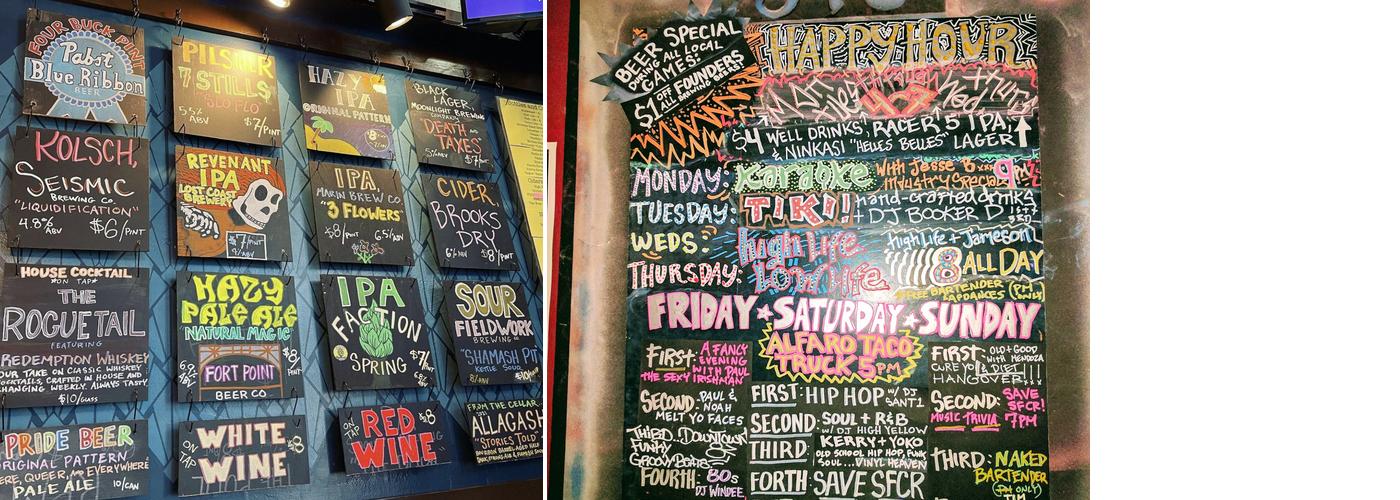 FOUR BUCK PINT
Pabst
Blue Ribbon
BEER
PILSNER
7 STILLS
"SLO FLO"
5.5%
ABV
$7/PINT
HAZY
IPA
ORIGINAL PATTERN
BLACK
LAGER,
MOONLIGHT BREWING
"DEATH AND
TAXES"
5% ABV
$7/PINT
KOLSCH,
SEISMIC
BREWING CO.
"LIQUIDIFICATION"
4.8% ABV
$6/PINT
REVENANT
IPA
LOST COAST
BREWERY
$7/PINT
IPA,
MARIN BREW CO
"3 FLOWERS"
$8/PINT
6.5/ABV
CIDER,
BROOKS
DRY
$8/PINT
HOUSE COCKTAIL
*ON TAP*
THE
ROGUETAIL
FEATURING
REDEMPTION WHISKEY
OUR TAKE ON CLASSIC WHISKEY
COCKTAILS, CRAFTED IN HOUSE AND
CHANGING WEEKLY. ALWAYS TASTY.
$10/GLASS
HAZY
PALE ALE
NATURAL MAGIC
FORT POINT
BEER CO
IPA
FACTION
SPRING
$7/
SOUR
FIELDWORK
BREWING
"SHAMASH PIT"
KETTLE SOUR
PRIDE BEER
ORIGINAL PATTERN
HERE, QUEER, AND EVERYWHERE
PALE ALE
10/CAN
WHITE
ON TAP
WINE
$8
ON TAP
RED
WINE
$8
FROM THE CELLAR
ALLAGASH
"STORIES TOLD"
BEER SPECIAL
DURING ALL LOCAL
GAMES:
$1 OFF FOUNDERS
ALL BREWING BEERS
HAPPY HOUR
$4 WELL DRINKS, RACER 5 IPA,
& NINKASI "HELLES BELLES" LAGER
MONDAY: Karaoke with Jesse B
Industry Specials 9PM
TUESDAY: TIKI!! hand-crafted drinks
+ DJ BOOKER D
WEDS: high Life High Life + Jameson
THURSDAY: Low Life 8 ALL DAY
FREE BARTENDER
LAPDANCES (PM ONLY)
FRIDAY ★ SATURDAY ★ SUNDAY
ALFARO TACO
TRUCK 5PM
FIRST: A FANCY
EVENING
WITH PAUL
THE SEXY IRISHMAN
SECOND: PAUL &
NOAH
MELT YO FACES
THIRD: DOWNTOWN
FUNKY
GROOVY BEATS
FOURTH: 80s
DJ WINDEE
FIRST: HIP HOP W/ DJ
SANT1
SECOND: SOUL + R&B
W/ DJ HIGH YELLOW
THIRD: KERRY + YOKO
OLD SCHOOL HIP HOP, FUNK
SOUL... VINYL HEAVEN
FORTH: SAVE SFCR
FIRST: OLD + GOOD
WITH MENDOZA
CURE YO
HANGOVER!!!
SECOND: SAVE
SFCR!
MUSIC TRIVIA 7PM
THIRD: NAKED
BARTENDER
(PM ONLY)